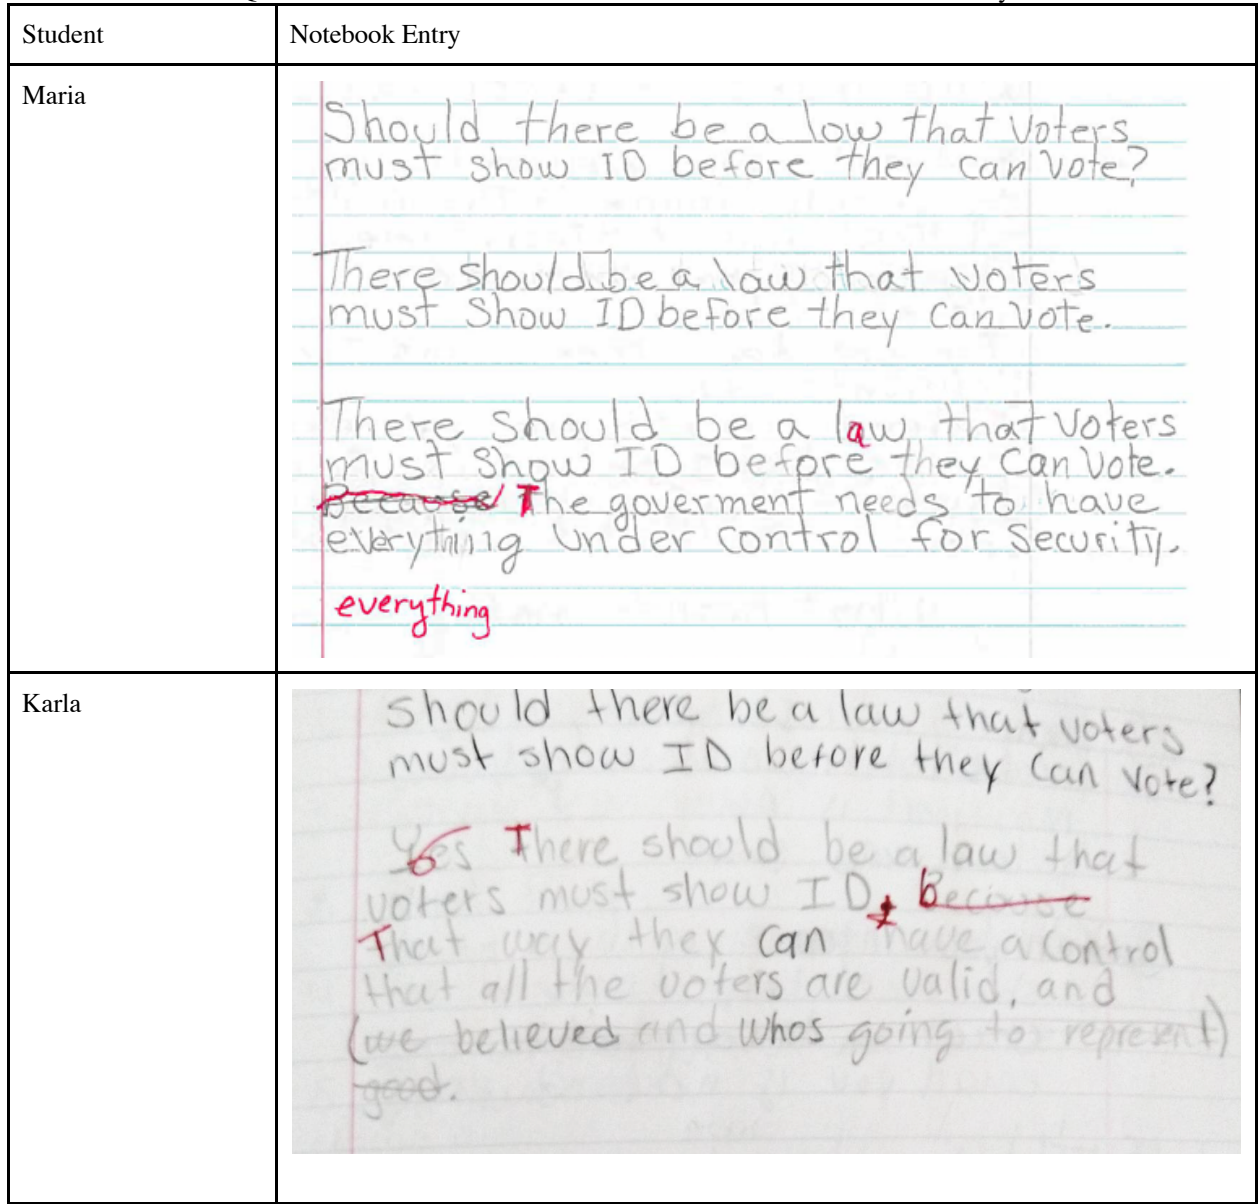 Student Notebook Entry
Maria
Should there be a low that voters
must show ID before they can vote?
There should be a law that voters
must show ID before they can vote.
There should be a law that voters
must show ID before they can vote.
Because The goverment needs to have
everything under control for security.
everything
Karla
should there be a law that voters
must show ID before they can vote?
Yes There should be a law that
voters must show ID. Beciouse
That way they can have a control
that all the voters are valid, and
(we believed and whos going to represent)
good.